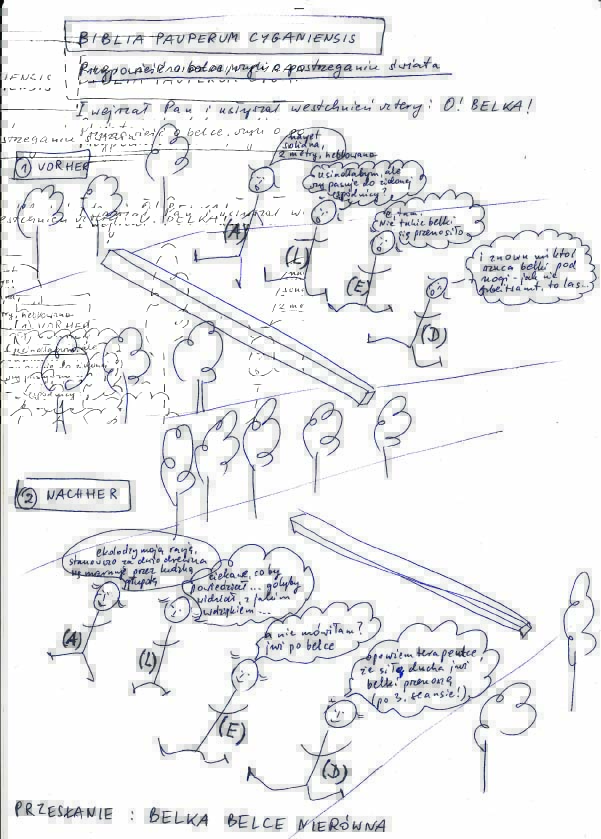 BIBLIA PAUPERUM CYGANIENSIS
Przypowieść o belce, czyli o postrzeganiu świata
I wejrzał Pan i usłyszał westchnień cztery: O! BELKA!
① VORHER
nawet
solidna,
2 metry, heblowana
usiadłabym, ale
czy pasuje do zielonej
spódnicy?
e, tam.
Nie takie belki
się przenosiło
i znowu mi ktoś
rzuca belki pod
nogi - jak nie
to las...
(A)
(Ł)
(E)
(D)
② NACHHER
ekolodzy mają rację,
stanowczo za dużo drewna
się marnuje przez ludzką
głupotę
ciekawe, co by
powiedział... gdyby
widział, z jakim
wdziękiem...
a nie mówiłam?
już po belce
opowiem terapeutce,
że siłą ducha już
belki przenoszę
(po 3. seansie!)
(A)
(Ł)
(E)
(D)
PRZESŁANIE : BELKA BELCE NIERÓWNA